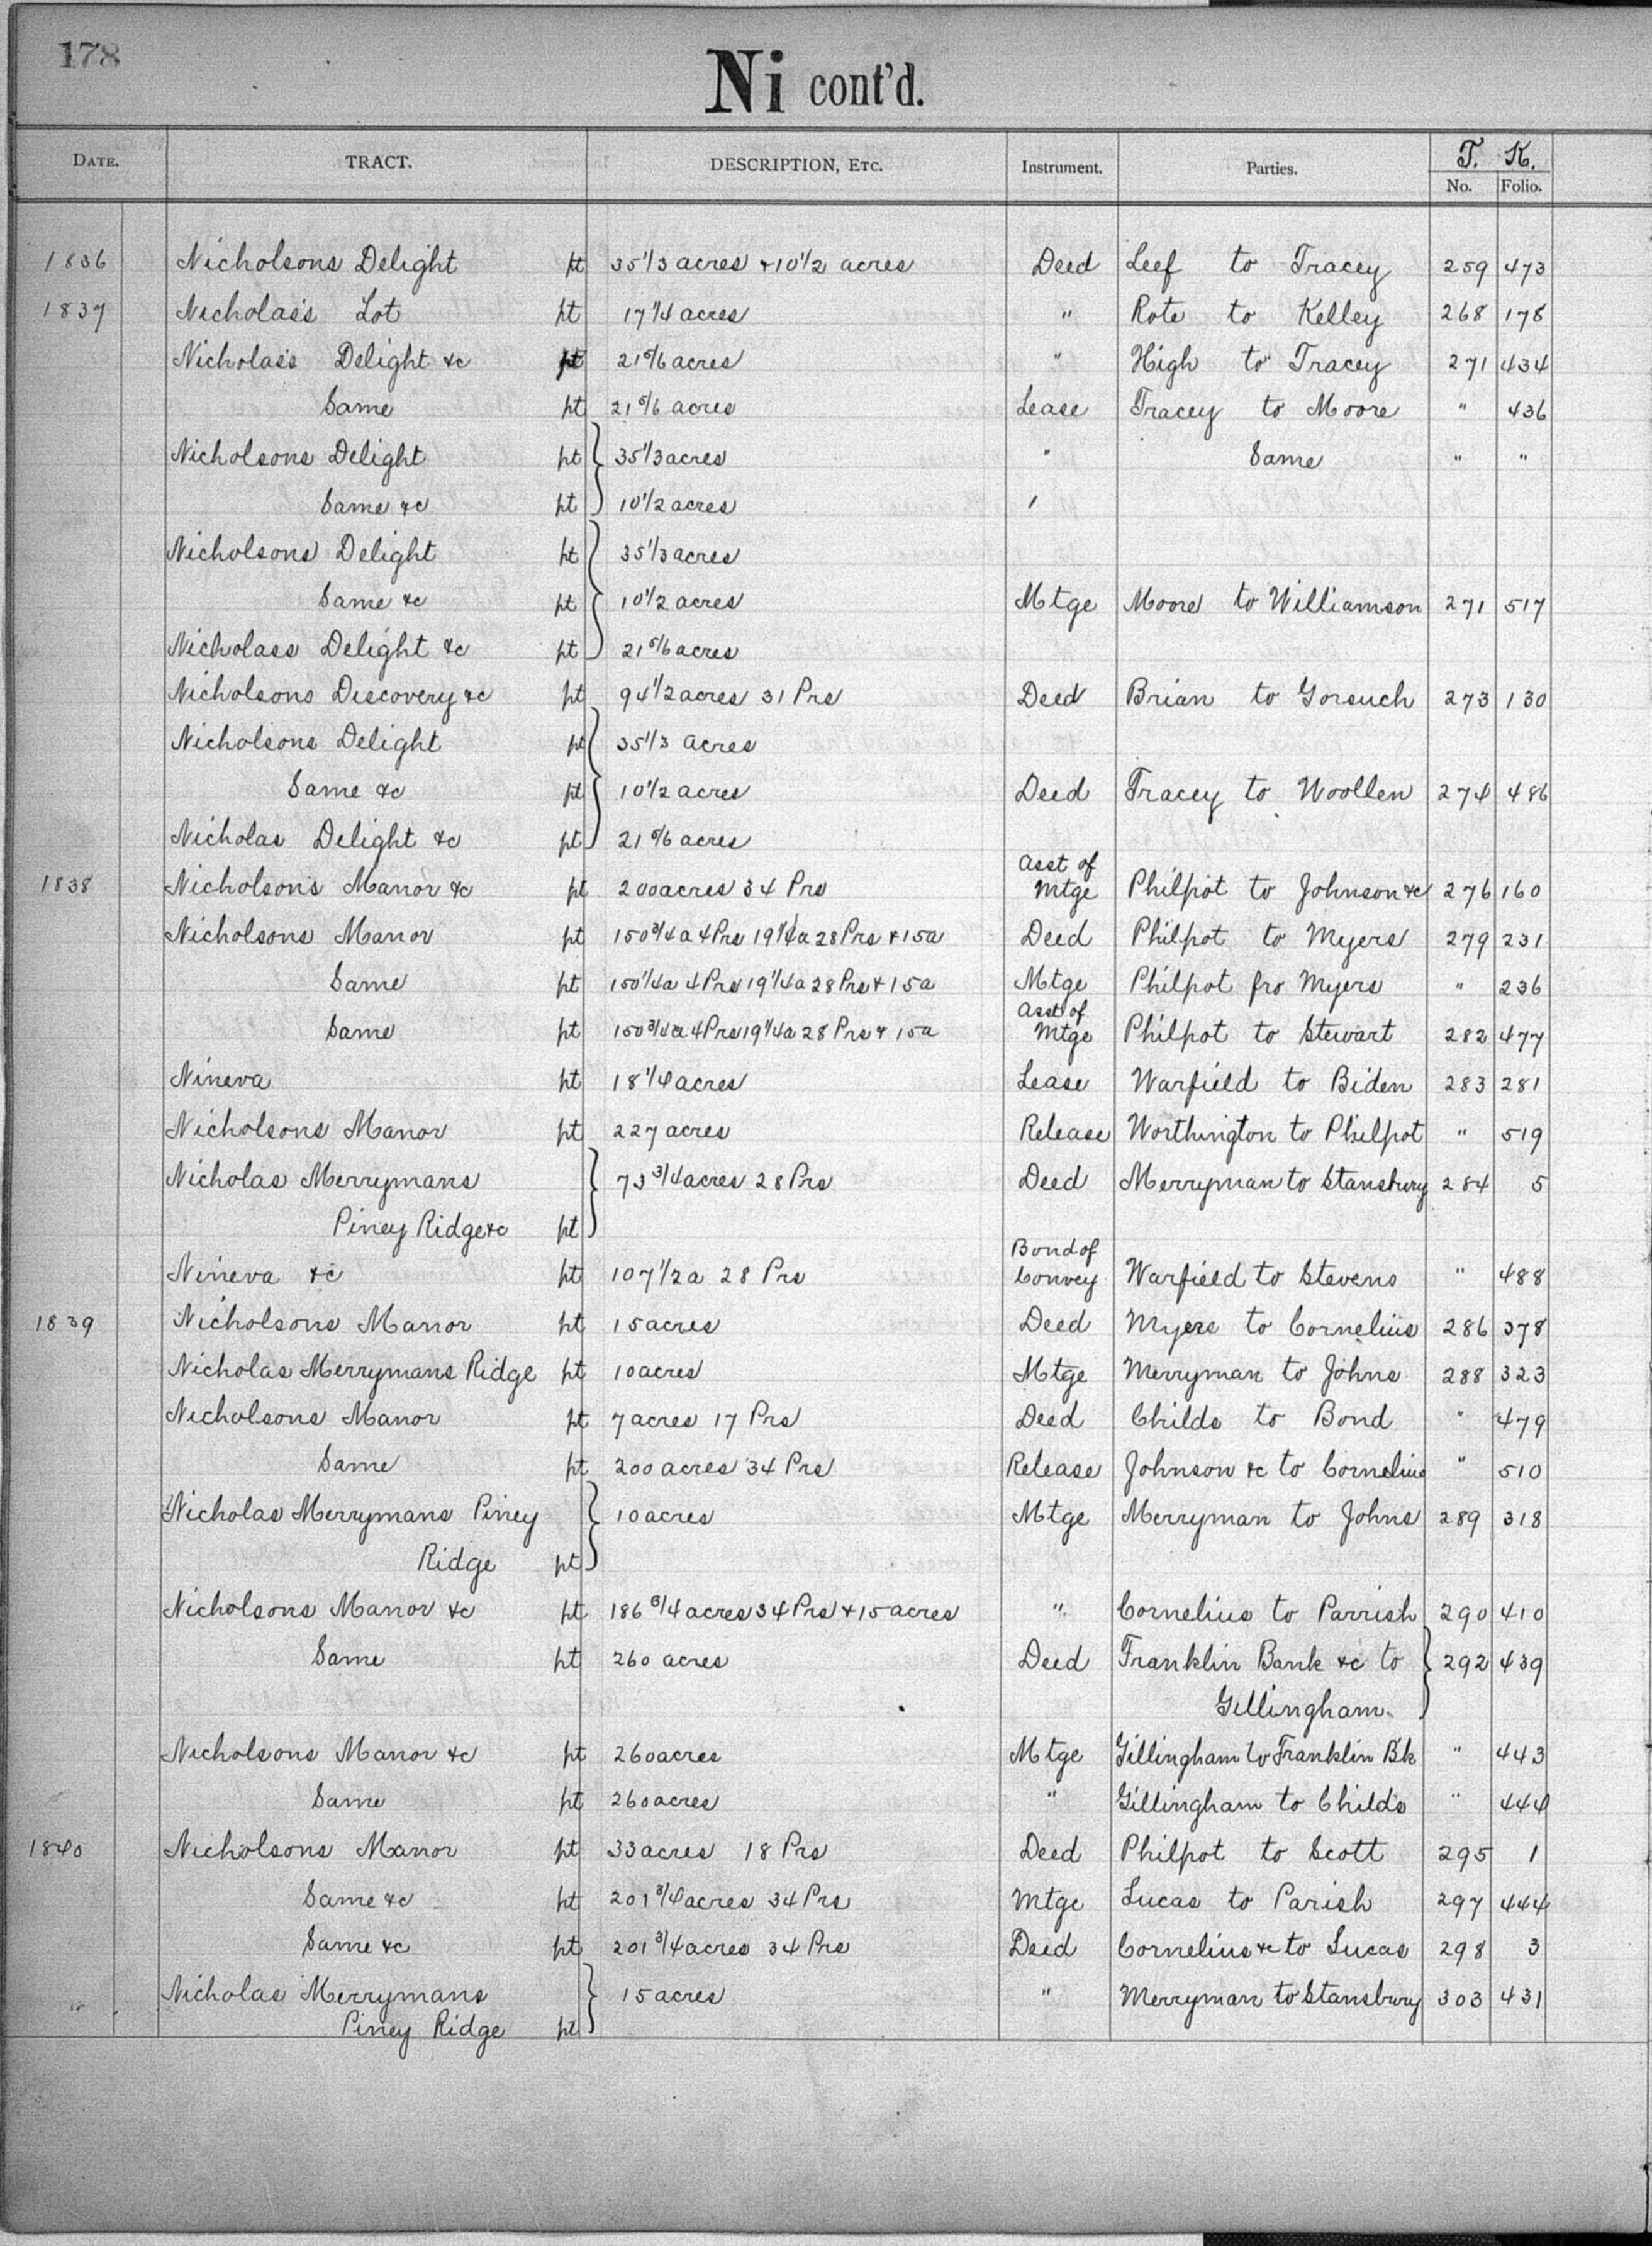 178
Ni cont'd.
DATE. TRACT. DESCRIPTION, ETC. Instrument. Parties. T. K.
No. Folio.
1836 Nicholsons Delight pt 35 1/3 acres + 10 1/2 acres Deed Leef to Tracey 259 473
1837 Nicholas's Lot pt 17 1/4 acres " Rote to Kelley 268 178
Nicholas's Delight &c pt 21 5/6 acres " High to Tracey 271 434
Same pt 21 5/6 acres Lease Tracey to Moore " 436
Nicholsons Delight pt 35 1/3 acres " Same " "
Same &c pt 10 1/2 acres '
Nicholsons Delight pt 35 1/3 acres
Same &c pt 10 1/2 acres Mtge Moore to Williamson 271 517
Nicholass Delight &c pt 21 5/6 acres
Nicholsons Discovery &c pt 94 1/2 acres 31 Prs Deed Brian to Gorsuch 273 130
Nicholsons Delight pt 35 1/3 acres
Same &c pt 10 1/2 acres Deed Tracey to Woollen 274 486
Nicholas Delight &c pt 21 5/6 acres
1838 Nicholson's Manor &c pt 200 acres 34 Prs Asst of Mtge Philpot to Johnson &c 276 160
Nicholsons Manor pt 150 3/4 a 4 Prs 19 1/4 a 28 Prs + 15 a Deed Philpot to Myers 279 231
Same pt 150 1/4 a 4 Prs 19 1/4 a 28 Prs + 15 a Mtge Philpot fro Myers " 236
Same pt 150 3/4 a 4 Prs 19 1/4 a 28 Prs + 15 a Asst of Mtge Philpot to Stewart 282 477
Nineva pt 18 1/4 acres Lease Warfield to Biden 283 281
Nicholsons Manor pt 227 acres Release Worthington to Philpot " 519
Nicholas Merrymans 73 3/4 acres 28 Prs Deed Merryman to Stansbury 284 5
Piney Ridge &c pt
Nineva &c pt 107 1/2 a 28 Prs Bond of Convey Warfield to Stevens " 488
1839 Nicholsons Manor pt 15 acres Deed Myers to Cornelius 286 378
Nicholas Merrymans Ridge pt 10 acres Mtge Merryman to Johns 288 323
Nicholsons Manor pt 7 acres 17 Prs Deed Childs to Bond " 479
Same pt 200 acres 34 Prs Release Johnson &c to Cornelius " 510
Nicholas Merrymans Piney 10 acres Mtge Merryman to Johns 289 318
Ridge pt
Nicholsons Manor &c pt 186 3/4 acres 34 Prs + 15 acres " Cornelius to Parrish 290 410
Same pt 260 acres Deed Franklin Bank &c to 292 439
Gillingham
Nicholsons Manor &c pt 260 acres Mtge Gillingham to Franklin Bk " 443
Same pt 260 acres " Gillingham to Childs " 444
1840 Nicholsons Manor pt 33 acres 18 Prs Deed Philpot to Scott 295 1
Same &c pt 201 3/4 acres 34 Prs Mtge Lucas to Parish 297 444
Same &c pt 201 3/4 acres 34 Prs Deed Cornelius &c to Lucas 298 3
Nicholas Merrymans 15 acres " Merryman to Stansbury 303 431
Piney Ridge pt